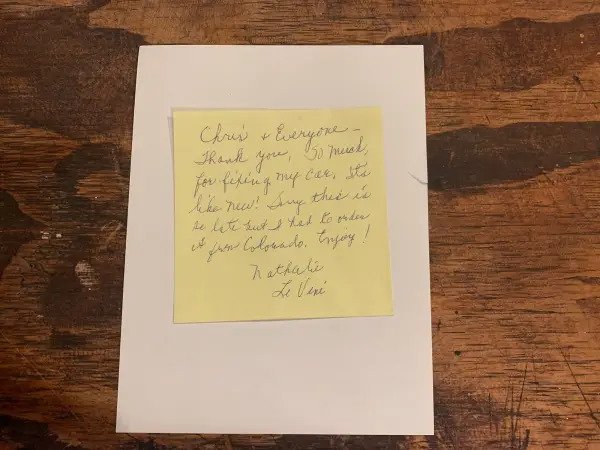 Chris + Everyone –
Thank you, so much,
for fixing my car. Its
like new! Sorry this is
so late but I had to order
it from Colorado. Enjoy!
Nathalie
Le Veni